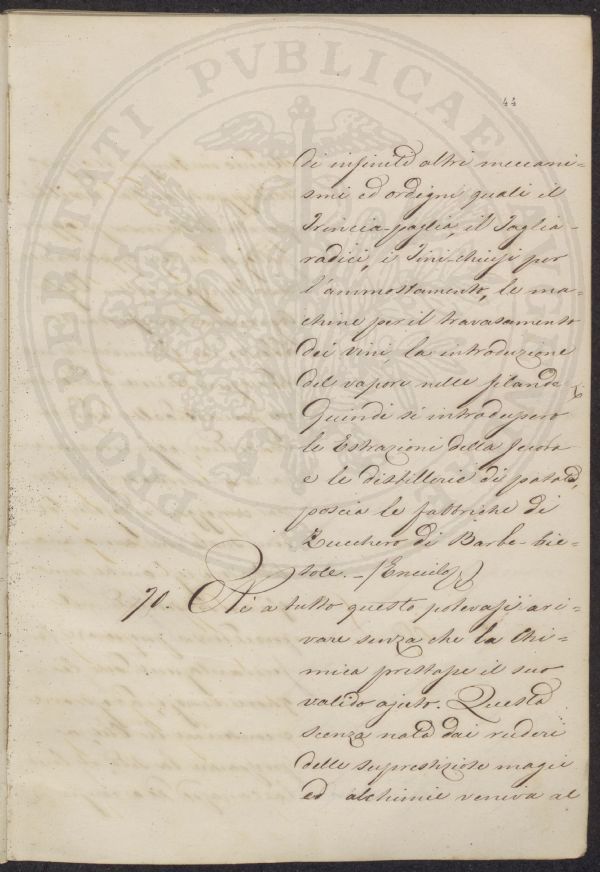 PROSPERITATI PVBLICAE
44
di infinità altri meccani=
smi ed ordigni quali il
Trincia-paglia, il Taglia-
radici, i Tini-chiusi per
l'ammostamento, le ma=
chine per il travasamento
dei vini, la introduzione
del vapore nelle filande.
Quindi si introdussero
le Estrazioni della fecola
e le distillerie di patate,
poscia le fabbriche di
Zucchero di Barbe-bie=
tole. -
70. Nè a tutto questo potevasi ari=
vare senza che la Chi=
mica prestasse il suo
valido ajuto. Questa
scenza nata dai ruderi
delle superstiziose magie
ed alchimie veniva al